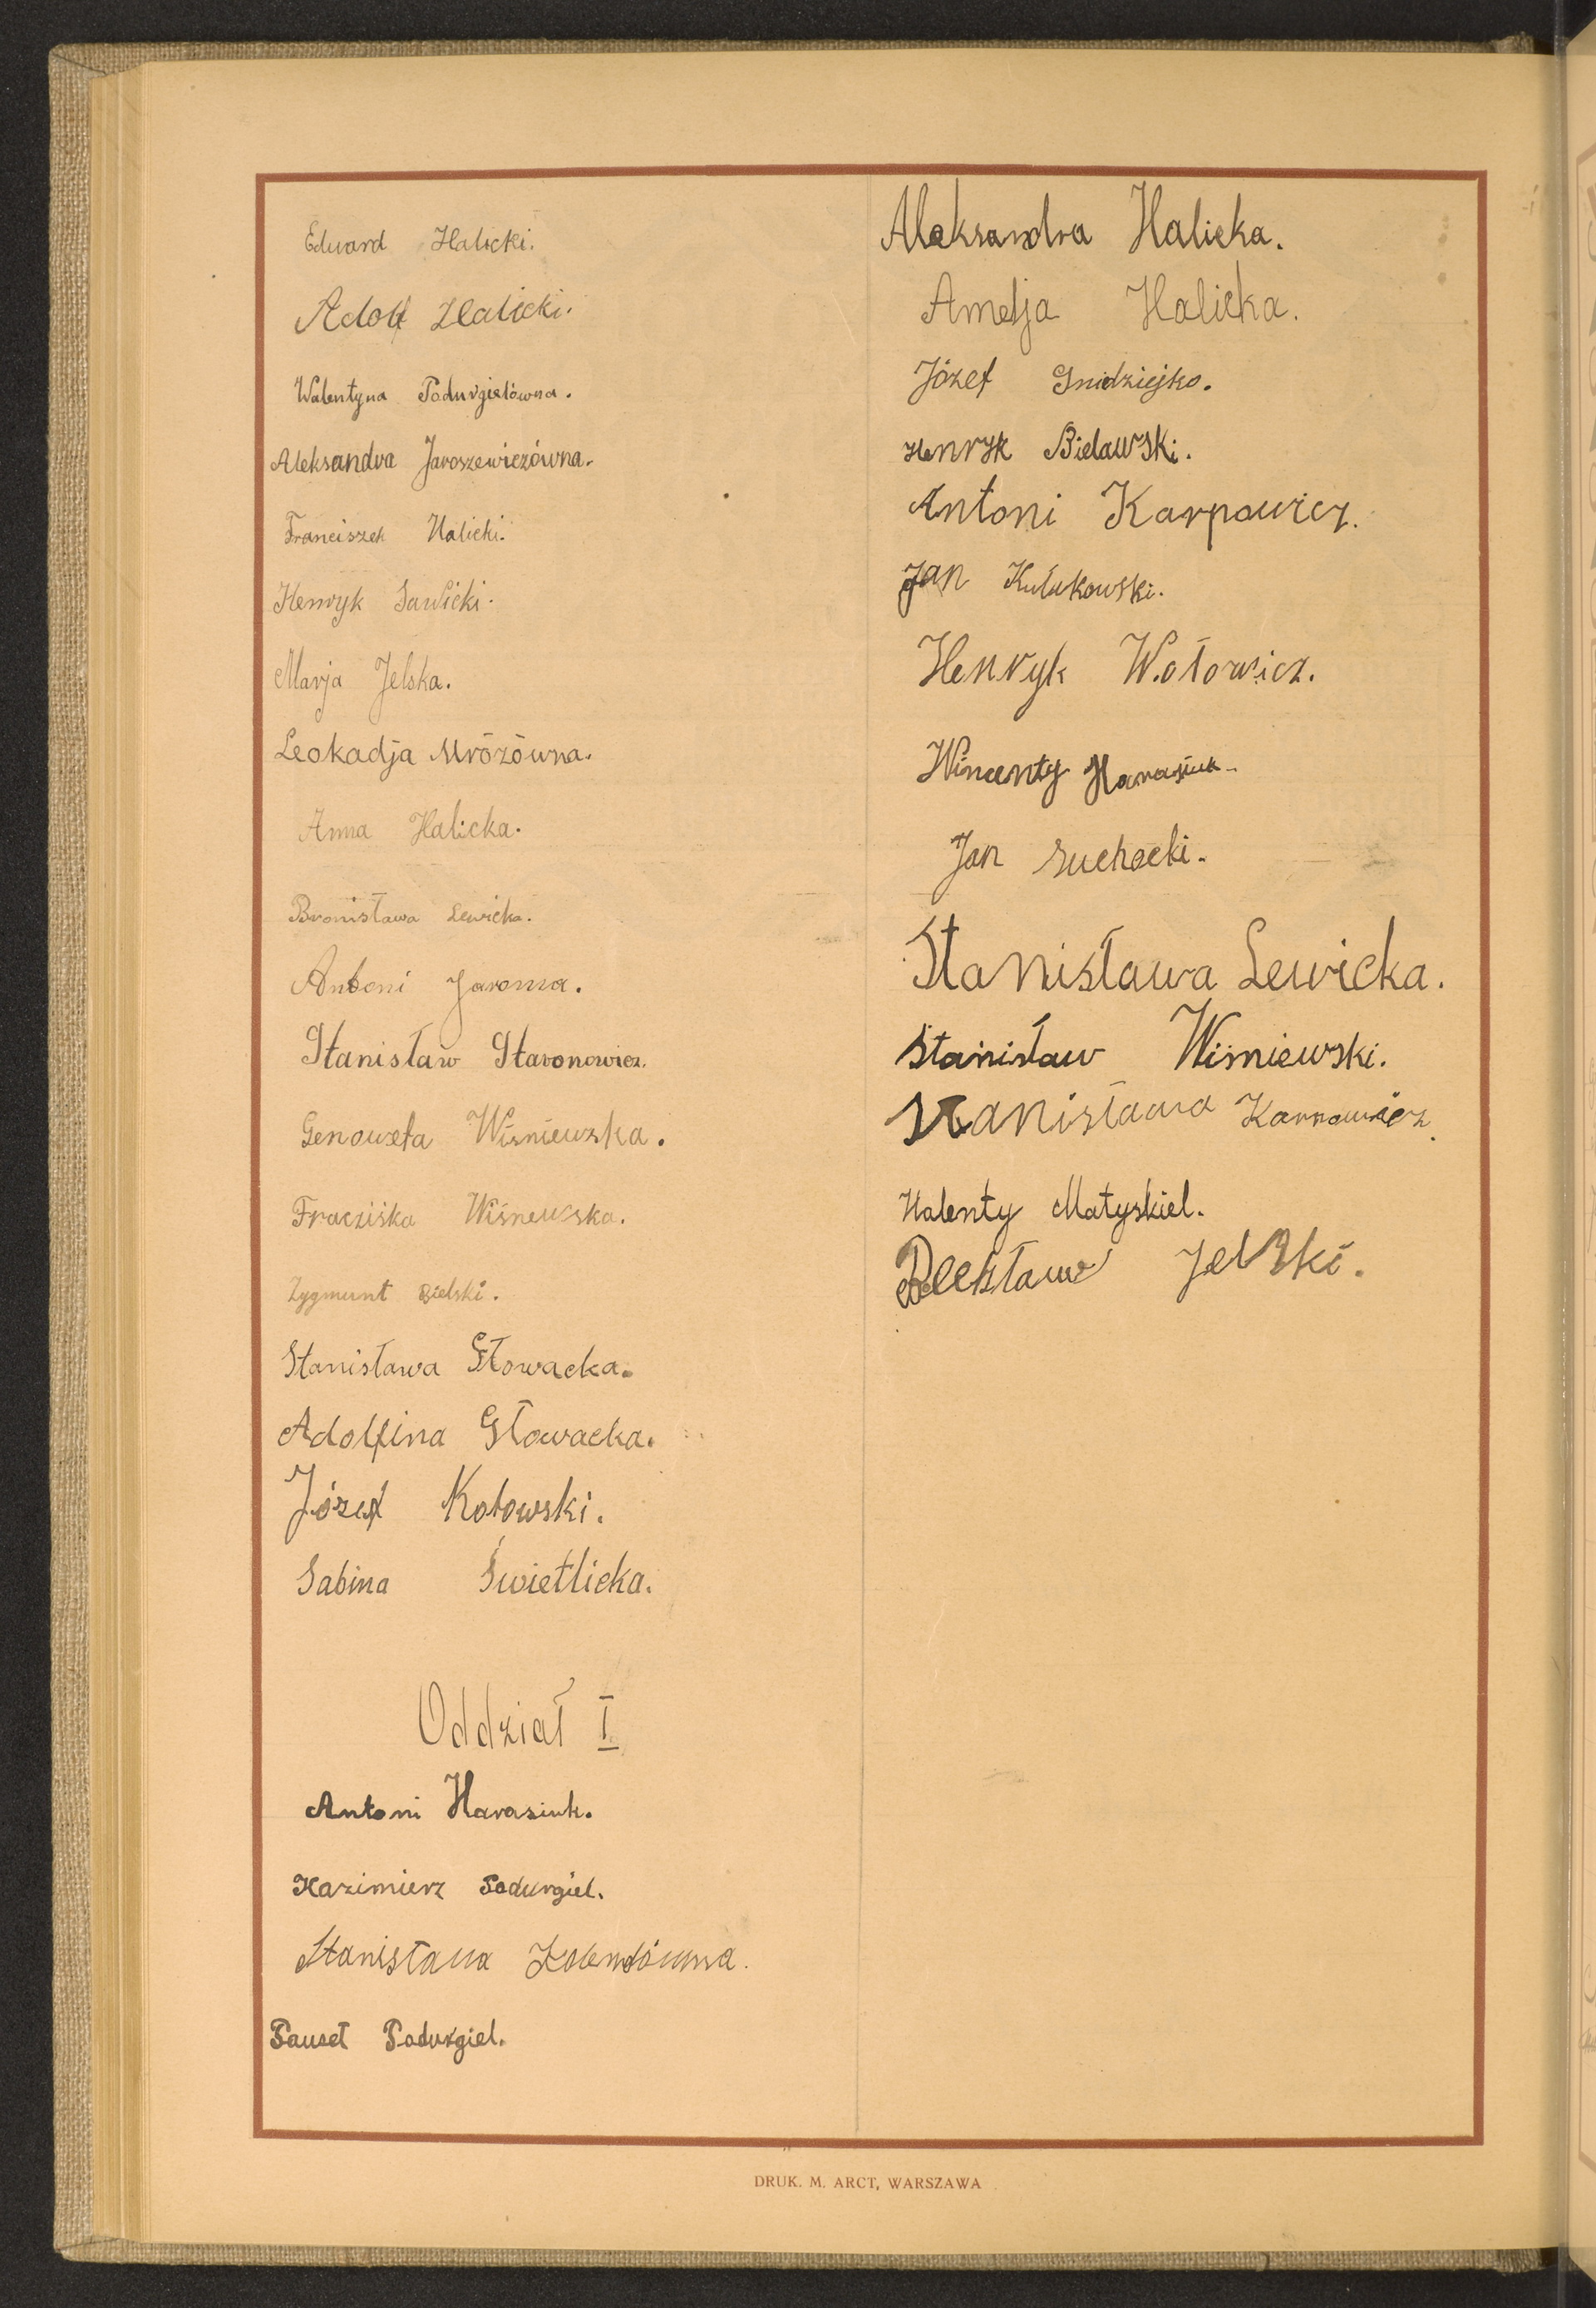 Eduard Halicki.
Adolf Halicki.
Walentyna Podurgielówna.
Aleksandra Jaroszewiczówna.
Franciszek Halicki.
Henryk Sawicki.
Marja Jelska.
Leokadja Mrózówna.
Anna Halicka.
Bronisława Lewicka.
Antoni Jaroma.
Stanisław Staronowicz.
Genowefa Wiśniewska.
Fraciśka Wiśnewska.
Zygmunt Bielski.
Stanisława Głowacka.
Adolfina Głowacka.
Józef Kotowski.
Sabina Świetlicka.
Oddział I
Antoni Harasiuk.
Kazimierz Podurgiel.
Stanisława
Paweł Podurgiel.
Aleksandra Halicka.
Amelja Halicka.
Józef Gnidziejko.
Henryk Bielawski.
Antoni Karpowicz.
Jan Kułakowski.
Henryk Wołowicz.
Wincenty Harasiuk.
Jan Suchocki.
Stanisława Lewicka.
Stanisław Wiśniewski.
Stanisława Karpowicz.
Walenty Matyskiel.
Jelski.
DRUK. M. ARCT, WARSZAWA